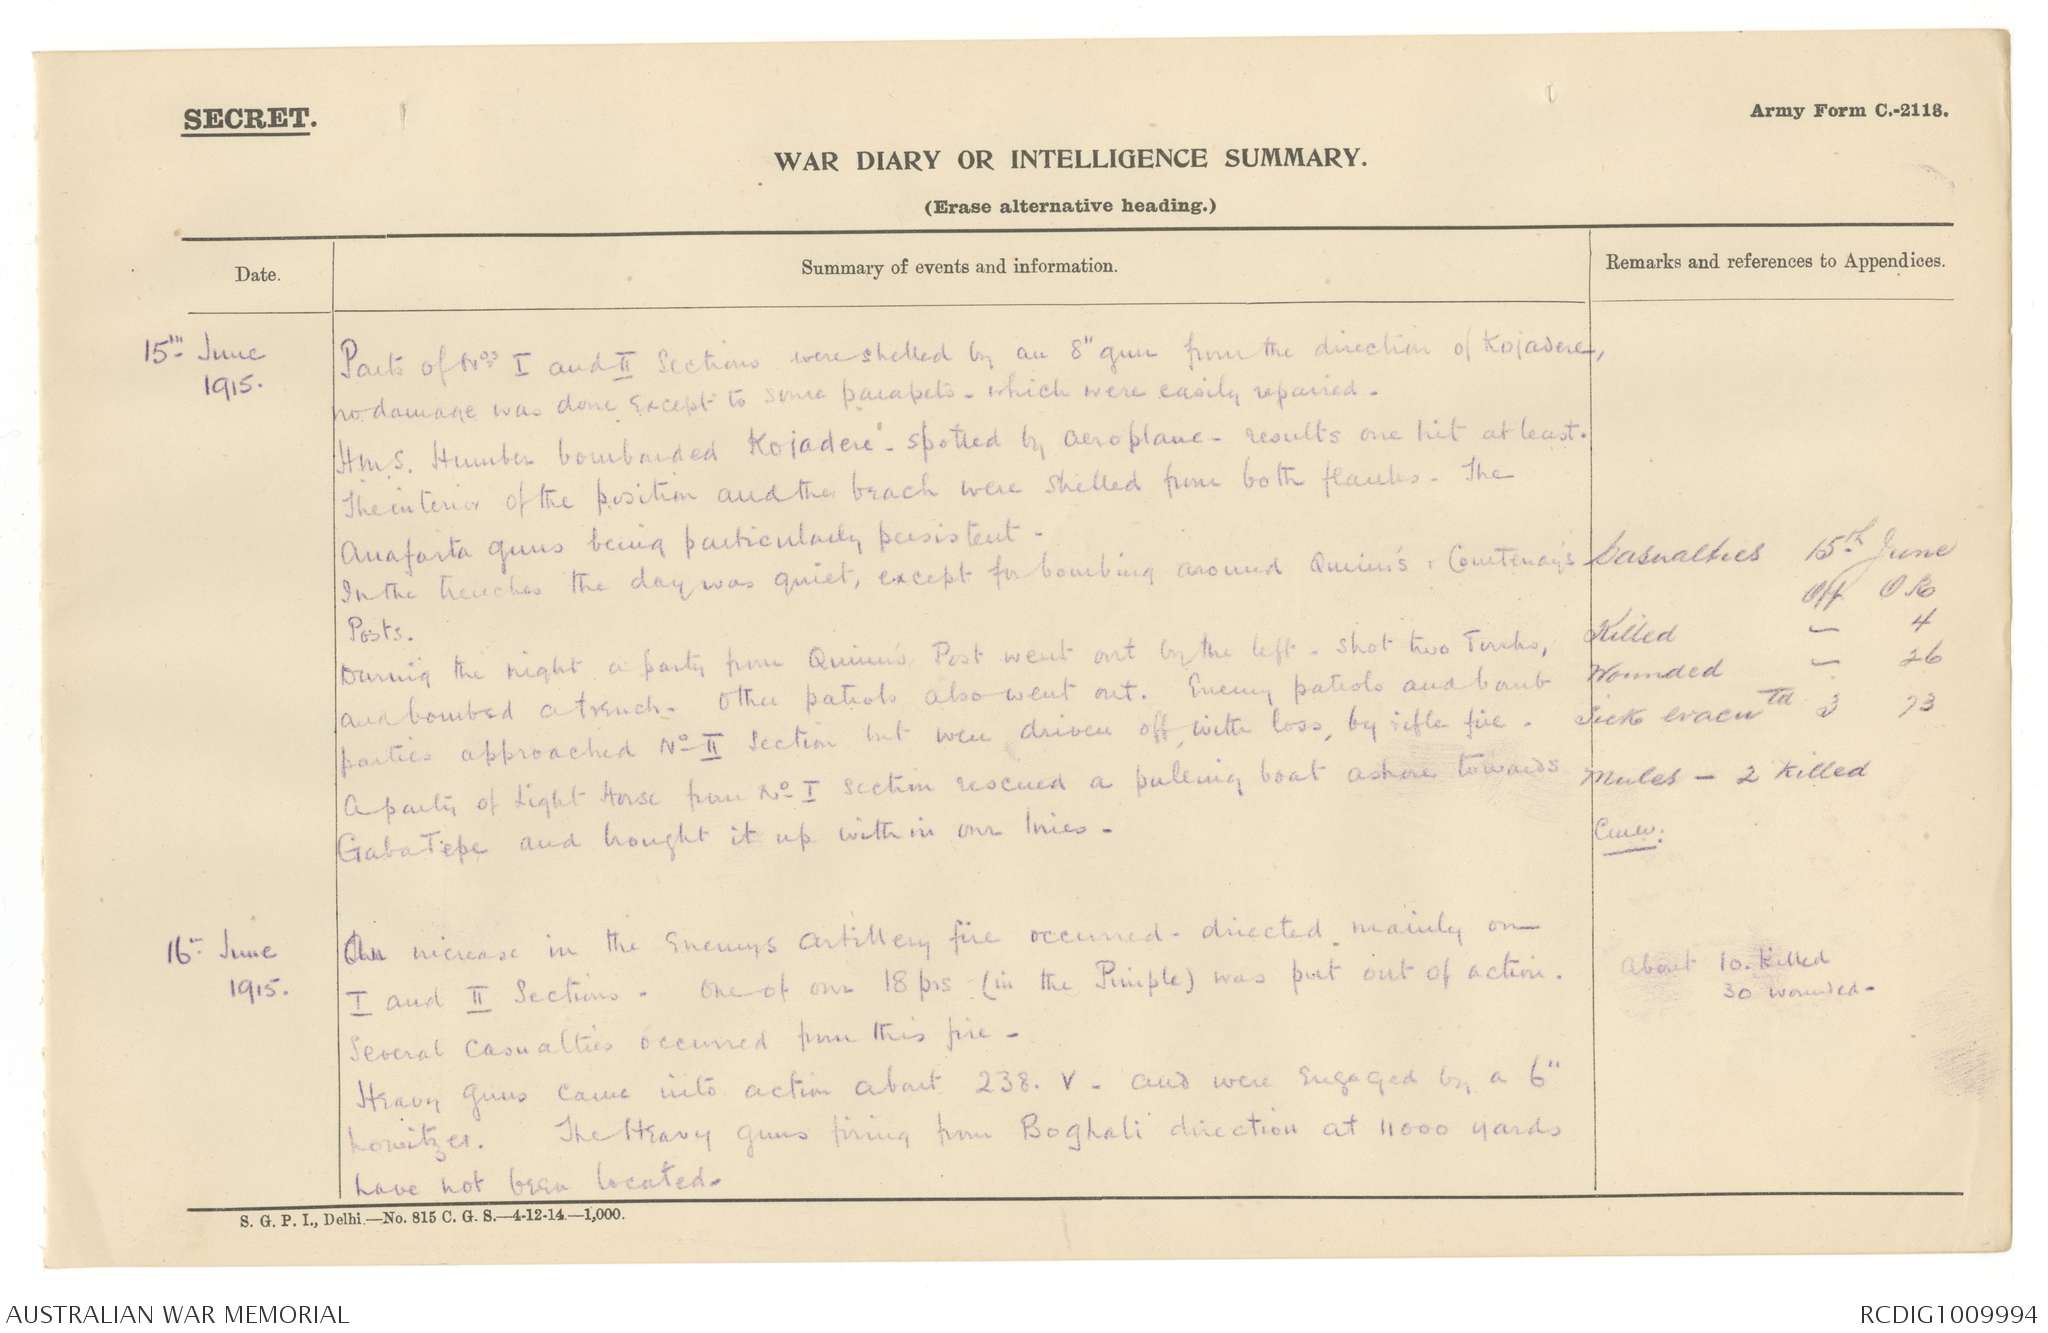 SECRET.
Army Form C.-2118.
WAR DIARY OR INTELLIGENCE SUMMARY.
(Erase alternative heading.)
Date.
Summary of events and information.
Remarks and references to Appendices.
15th June
1915.
Parts of Nos I and II Sections were shelled by an 8" gun from the direction of Kojadere,
no damage was done except to some parapets - which were easily repaired -
H.M.S. Humber bombarded Kojadere - spotted by aeroplane - results one hit at least.
The interior of the position and the beach were shelled from both flanks - The
Anafarta guns being particularly persistent -
In the trenches the day was quiet, except for bombing around Quinn's & Courtenay's
Posts.
During the night a party from Quinn's Post went out by the left - shot two Turks,
and bombed a trench - Other patrols also went out. Enemy patrols and bomb
parties approached No II Section but were driven off, with loss, by rifle fire -
A party of Light Horse from No I section rescued a pulling boat ashore towards
GabaTepe and brought it up within our lines -
Casualties 15th June
Off OR
Killed — 4
Wounded — 26
Sick evacutd 3 73
Mules — 2 killed
16th June
1915.
An increase in the Enemys artillery fire occurred - directed mainly on
I and II Sections - One of our 18 prs (in the Pimple) was put out of action.
Several casualties occurred from this fire -
Heavy guns came into action about 238. V - and were engaged by a 6"
howitzer. The Heavy guns firing from Boghali direction at 11000 yards
have not been located -
About 10. killed
30 wounded -
S. G. P. I., Delhi.—No. 815 C. G. S.—4-12-14.—1,000.
AUSTRALIAN WAR MEMORIAL
RCDIG1009994